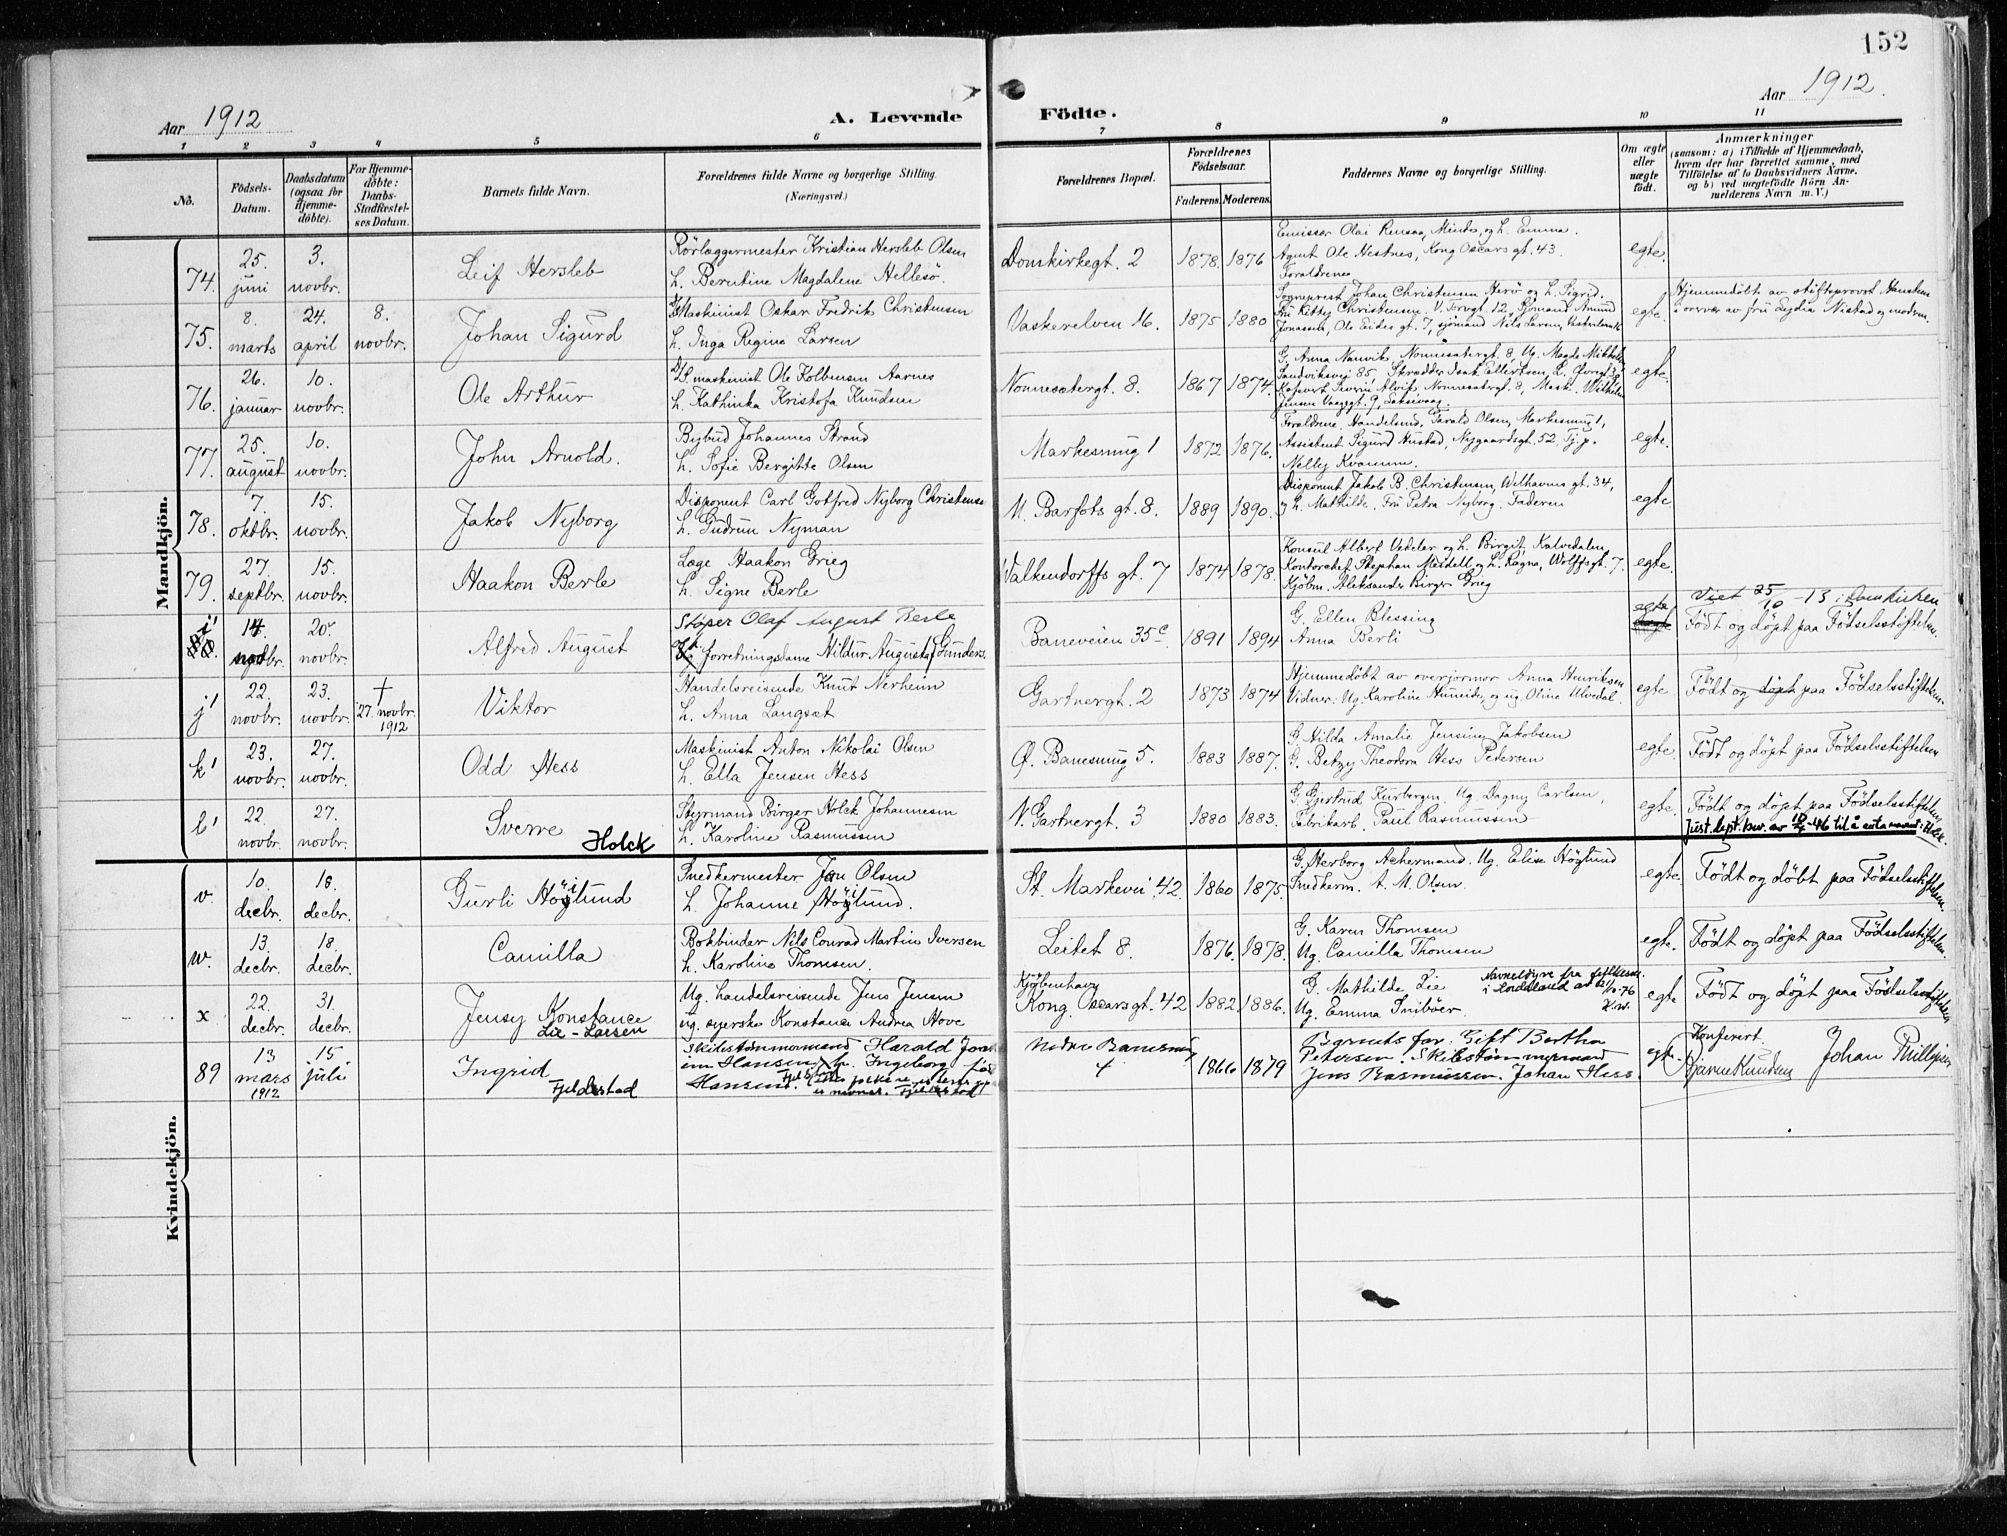 152
Aar 1912
A. Levende
Födte.
Aar 1912.
1 2 3 4 5 6 7 8 9 10 11
No.
Födsels-
Datum.
Daabsdatum
(ogsaa for
Hjemme-
döbte).
For Hjemme-
döbte:
Daabs-
Stadfæstel-
ses Datum.
Barnets fulde Navn.
Forældrenes fulde Navne og borgerlige Stilling.
(Næringsvei.)
Forældrenes Bopæl.
Forældrenes
Födselsaar.
Faderens. Moderens.
Faddernes Navne og borgerlige Stilling.
Om ægte
eller
uægte
födt.
Anmærkninger
(saasom: a) i Tilfælde af Hjemmedaab,
hvem der har forrettet samme, med
Tilföielse af to Daabsvidners Navne.
og b) ved uægtefödte Börn An-
melderens Navn m. V.)
Mandkjön.
74. 25. juni 3. novbr.
Leif Hersleb
Rörlæggermester Kristian Hersleb Olsen
h. Berntine Magdalene Hellesö.
Domkirkegt. 2 1878. 1876
Emissær Olai Rensaa, Minde, og h. Emma.
Agent Ole Hestnes, Kong Oscars gt. 43.
Forældrene
egte.
75. 8. marts 24. april 8. novbr.
Johan Sigurd
Maskinist Oskar Fredrik Christensen
h. Inga Regine Larsen
Vaskerelven 16. 1875 1880
Sogneprest Johan Christensen Herö og h. Sigrid.
Fru Kitty Christensen. V. Torvgt. 12, Sjömand Amund
Jonassen, Ole Euides gt. 7, sjömand Nils Larsen,
egte.
Hjemmedøbt av stiftsprovst Hansteen
i nærvær av fru Lydia Nistad og modren.
76. 26. januar 10. novbr.
Ole Arthur
D/S. maskinist Ole Kolbensen Aarnes
h. Kathinka Kristofa Knudsen
Nonnesætergt. 8. 1867 1874.
G. Anna Nanvik, Nonnesætergt. 8, Ug. Magda Mikkelsen
Sandviksvei 85 Skrædder Isak Ellertsen,
Severin Alvik, Nonnesætergt. 8, Mask. Wilhelm
Jensen Vaagegt. 9, Laksevaag.
egte.
77. 25. august 10. novbr.
John Arnold.
Bybud Johannes Strand
h. Sofie Bergitte Olsen
Markesmug 1 1872 1876.
Forældrene. Handelsmd. Harald Olsen, Markesmug 1,
Assistent Sigurd Hustad, Nygaardsgt. 52, Tj.p.
Nelly Kvamme.
egte.
78. 7. oktbr. 15. novbr.
Jakob Nyborg
Disponent Carl Gotfred Nyborg Christensen
h. Gudrun Nyman
M. Barfots gt. 8. 1889 1890.
Disponent Jakob B. Christensen, Welhavens gt. 34,
og h. Mathilde. Fru Petra Nyborg. Faderen
egte
79. 27. septbr. 15. novbr.
Haakon Berle
Læge Haakon Grieg
h. Signe Berle
Valkendorffs gt. 7 1874 1878.
Konsul Albert Vedeler og h. Birgit, Kalvedalen,
Kontorchef Stephan Meidell og h. Ragna, Wolffsgt. 7.
Kjöbm. Aleksander Birger Grieg
egte.
i' 14. novbr. 20. novbr.
Alfred August
Støper Olaf August Berle
forretningsdame Hildur Augusta Gunders.
Baneveien 35 c. 1891 1894
G. Ellen Blessing
Anna Berli
egte
Viet 25/10 -13 i Domkirken
Født og døpt paa Fødselsstiftelsen.
j' 22. novbr. 23. novbr. † 27. novbr. 1912
Viktor
Handelsreisende Knut Nerheim
h. Anna Langsæt
Gartnergt. 2 1873 1874
Hjemmedøbt av overjormor Anna Henriksen
Vidner: Ug. Karoline Hunvide, og ug. Oline Ulvedal.
egte
Født og døpt paa Fødselsstiftelsen.
k' 23. novbr. 27. novbr.
Odd Hess
Maskinist Anton Nikolai Olsen
h. Ella Jensen Hess
Ø. Banesmug 5. 1883 1887.
G. Hilda Amalie Jensine Jakobsen
G. Betzy Theodora Hess Petersen
egte.
Født og døpt paa Fødselsstiftelsen
l' 22. novbr. 27. novbr.
Sverre Holck
Styrmand Birger Holck Johannesen
h. Karoline Rasmussen
N. Gartnergt. 3 1880 1883.
G. Gjertrud Kurbergen. Ug. Dagny Carlsen,
Fabrikarb. Paul Rasmussen
egte.
Født og døpt paa Fødselsstiftelsen
Just. dept. bev. av -46 til å anta navnet: Holck.
Kvindekjön.
v. 10. decbr. 18. decbr.
Gurli Höjlund
Snedkermester Jan Olsen
h. Johanne Höjlund.
St. Markevei 42. 1860 1875.
G. Herborg Achermand. Ug. Elise Höglund
Snedkerm. A. M. Olsen.
egte.
Født og døbt paa Fødselsstiftelsen.
w. 13. decbr. 18. decbr.
Camilla
Bokbinder Nils Conrad Martin Iversen
h. Karoline Thomsen.
Leitet 8. 1876. 1878.
G. Karen Thomsen
Ug. Camilla Thomsen
egte.
Født og døpt paa Fødselsstiftelsen.
x 22. decbr. 31. decbr.
Jensy Konstance
Lie-Larsen
Ug. handelsreisende Jens Jensen
ug. syerske Konstance Andrea Hove
Kjøbenhavn
Kong Oscarsgt. 42 1882 1886.
G. Mathilde Lie
Ug. Emma Indbøer
Navneløyve fra fylkesm.
i Hordaland av -76
egte
Født og døpt paa Fødselsstiftelsen
89 13 mars 1912 15 juli
Ingrid
Fjeldstad
Skibstømmermand Harald Joak
im Hansen h. Ingeborg
Hansen.
Nedre Banesmug
4 1866 1879
Barnets far. Gift Bertha
Petersen. Skibstømmermand
Jens Rasmussen. Johan Hess.
egte.
Konferert.
Bjarne Knudsen Johan Phillipsen